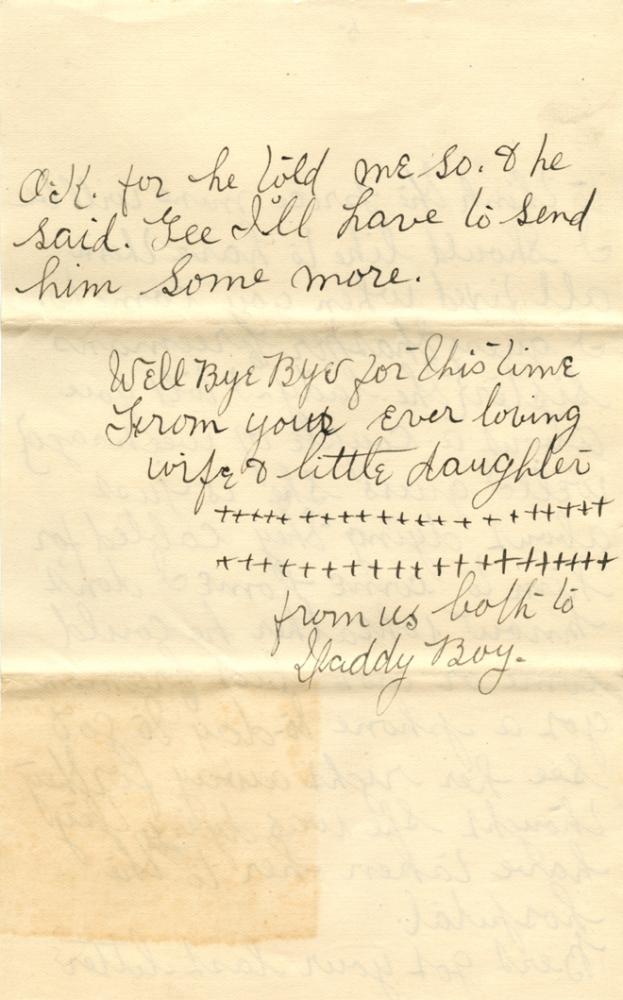 O.K. for he told me so. & he
said. Gee I'll have to send
him some more.
Well Bye Bye for this time
From your ever loving
wife & little daughter
+++++++++++++++++++++
+++++++++++++++++++++
from us both to
Daddy Boy.